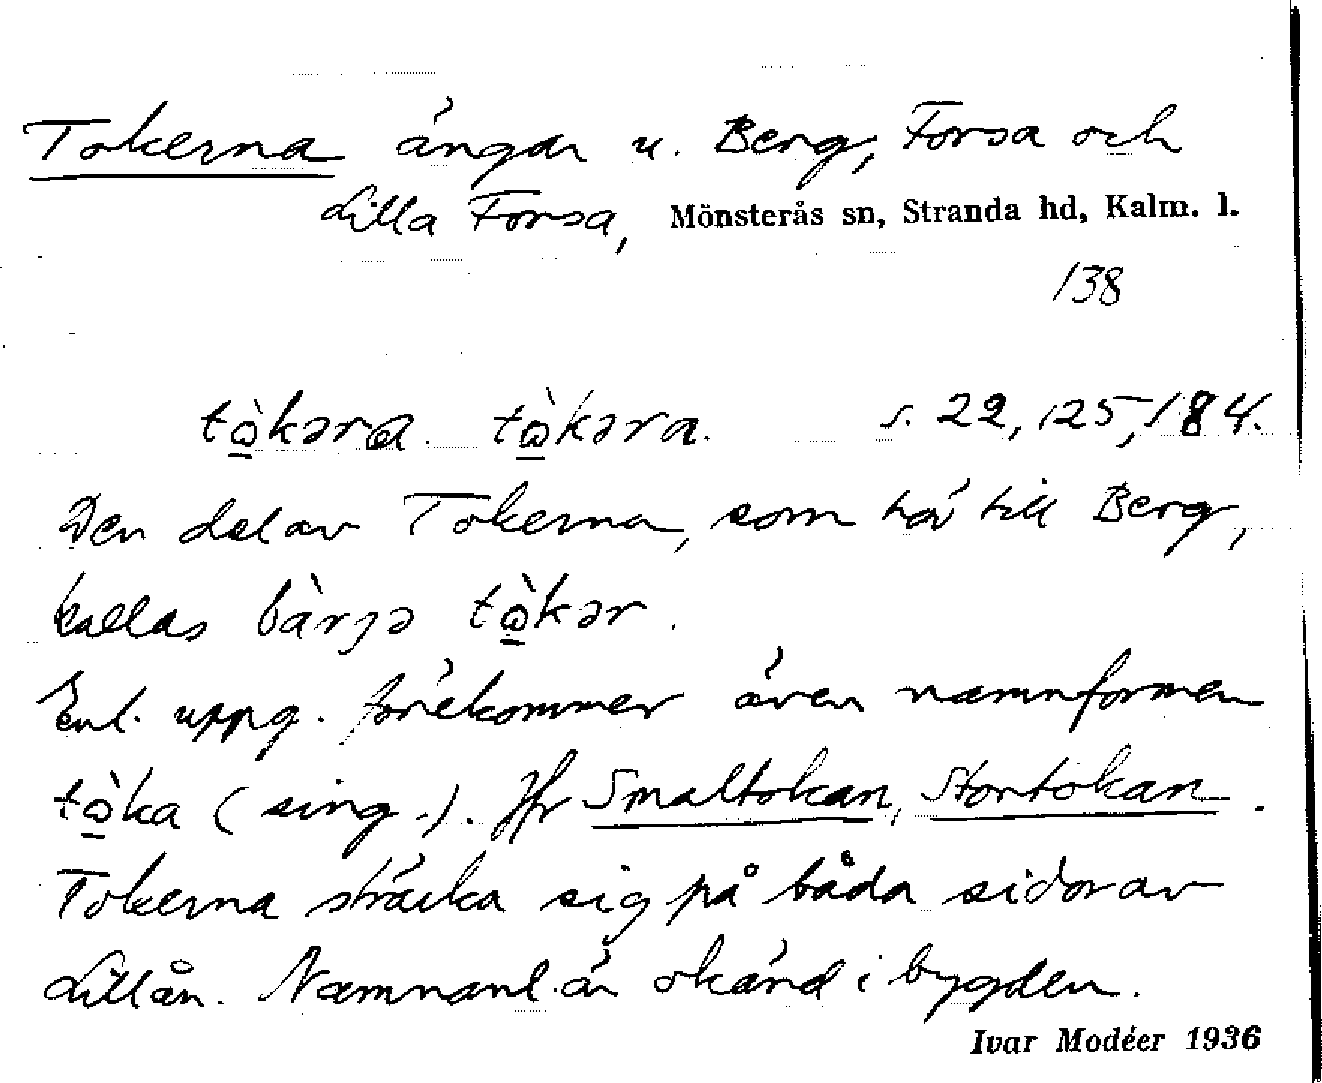 Tokerna ängar u. Berg, Forsa och
Lilla Forsa, Mönsterås sn, Stranda hd, Kalm. l.
138
tò̱kəra. tò̱kəra. s. 22, 125, 184.
Den del av Tokerna, som hör till Berg,
kallas bàrjə tò̱kər.
Enl. uppg. förekommer även namnformen
tò̱ka (sing.). Jfr Smaltokan, Stortokan.
Tokerna sträcka sig på båda sidor av
Lillån. Namnanl. är okänd i bygden.
Ivar Modéer 1936